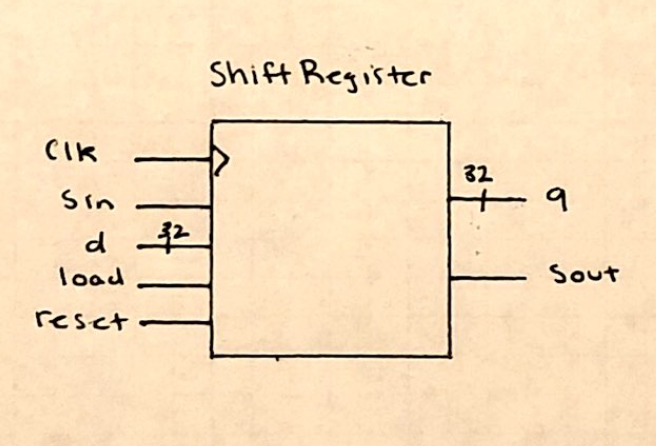 Shift Register
Clk
Sin
d 32
load
reset
32
q
Sout